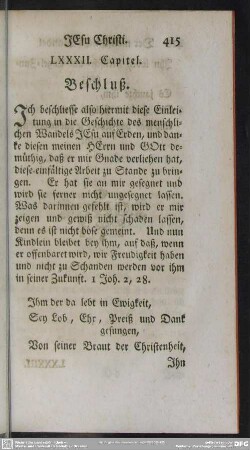 JEsu Christi. 415
LXXXII. Capitel.
Beschluß.
Ich beschliesse also hiermit diese Einlei-
tung in die Geschichte des menschli-
chen Wandels JEsu auf Erden, und dan-
ke diesen meinen HErrn und GOtt de-
müthig, daß er mir Gnade verliehen hat,
diese einfältige Arbeit zu Stande zu brin-
gen. Er hat sie an mir gesegnet und
wird sie ferner nicht ungesegnet lassen.
Was darinnen gefehlt ist, wird er mir
zeigen und gewiß nicht schaden lassen,
denn es ist nicht böse gemeint. Und nun
Kindlein bleibet bey ihm, auf daß, wenn
er offenbaret wird, wir Freudigkeit haben
und nicht zu Schanden werden vor ihm
in seiner Zukunft. 1 Joh. 2, 28.
Ihm der da lebt in Ewigkeit,
Sey Lob, Ehr, Preiß und Dank
gesungen,
Von seiner Braut der Christenheit,
Ihn